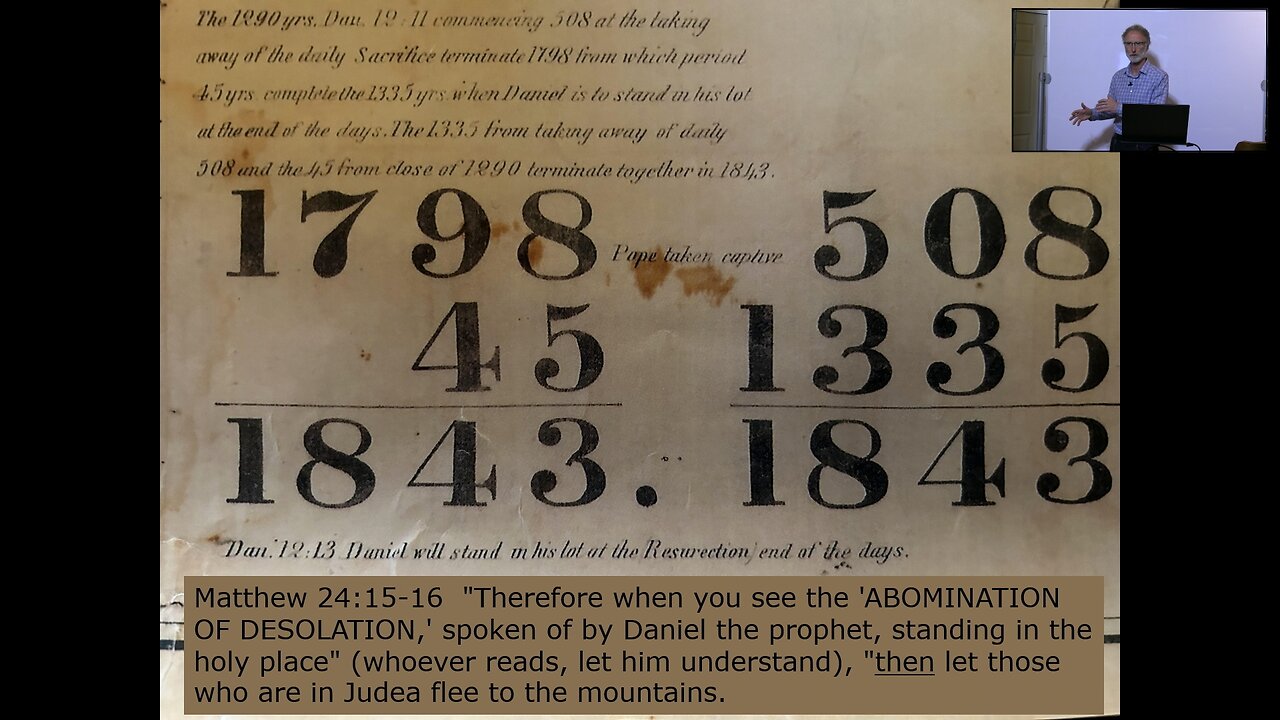 The 1290 yrs. Dan. 12:11 commencing 508 at the taking
away of the daily Sacrifice terminate 1798 from which period
45 yrs complete the 1335 yrs. when Daniel is to stand in his lot
at the end of the days. The 1335 from taking away of daily
508 and the 45 from close of 1290 terminate together in 1843.
1798 Pape taken captive 508
45 1335
1843. 1843
Dan. 12:13 Daniel will stand in his lot at the Resurection, end of the days.
Matthew 24:15-16 "Therefore when you see the 'ABOMINATION
OF DESOLATION,' spoken of by Daniel the prophet, standing in the
holy place" (whoever reads, let him understand), "then let those
who are in Judea flee to the mountains.